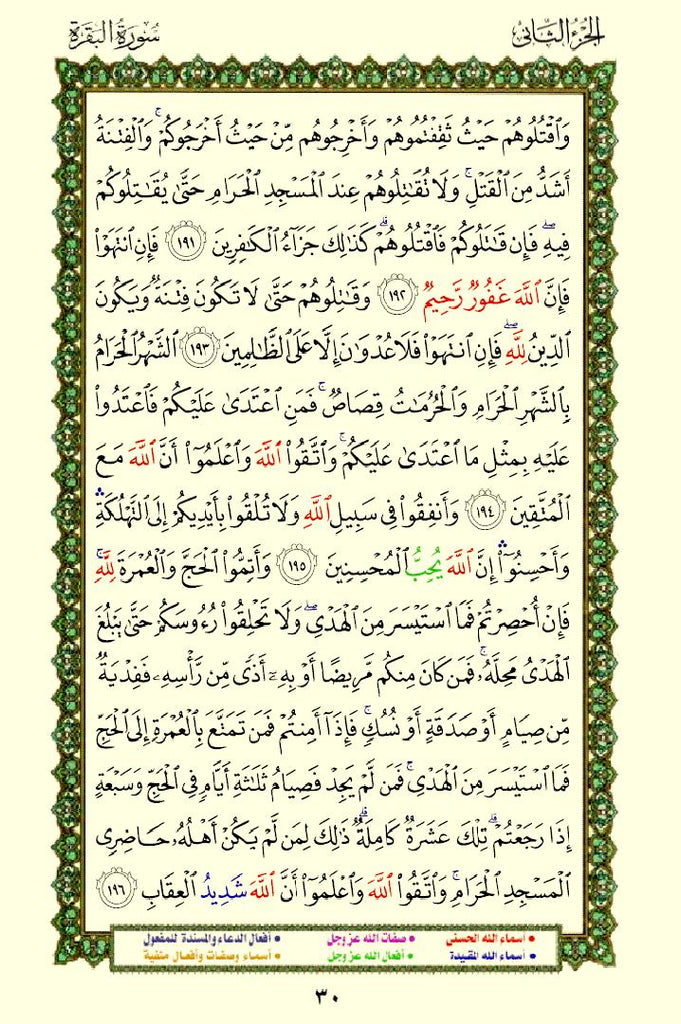 الجزء الثاني
سورة البقرة
وَٱقْتُلُوهُمْ حَيْثُ ثَقِفْتُمُوهُمْ وَأَخْرِجُوهُم مِّنْ حَيْثُ أَخْرَجُوكُمْ ۚ وَٱلْفِتْنَةُ
أَشَدُّ مِنَ ٱلْقَتْلِ ۚ وَلَا تُقَٰتِلُوهُمْ عِندَ ٱلْمَسْجِدِ ٱلْحَرَامِ حَتَّىٰ يُقَٰتِلُوكُمْ
فِيهِ ۖ فَإِن قَٰتَلُوكُمْ فَٱقْتُلُوهُمْ ۗ كَذَٰلِكَ جَزَآءُ ٱلْكَٰفِرِينَ ١٩١ فَإِنِ ٱنتَهَوْا۟
فَإِنَّ ٱللَّهَ غَفُورٌ رَّحِيمٌ ١٩٢ وَقَٰتِلُوهُمْ حَتَّىٰ لَا تَكُونَ فِتْنَةٌ وَيَكُونَ
ٱلدِّينُ لِلَّهِ ۖ فَإِنِ ٱنتَهَوْا۟ فَلَا عُدْوَٰنَ إِلَّا عَلَى ٱلظَّٰلِمِينَ ١٩٣ ٱلشَّهْرُ ٱلْحَرَامُ
بِٱلشَّهْرِ ٱلْحَرَامِ وَٱلْحُرُمَٰتُ قِصَاصٌ ۚ فَمَنِ ٱعْتَدَىٰ عَلَيْكُمْ فَٱعْتَدُوا۟
عَلَيْهِ بِمِثْلِ مَا ٱعْتَدَىٰ عَلَيْكُمْ ۚ وَٱتَّقُوا۟ ٱللَّهَ وَٱعْلَمُوٓا۟ أَنَّ ٱللَّهَ مَعَ
ٱلْمُتَّقِينَ ١٩٤ وَأَنفِقُوا۟ فِى سَبِيلِ ٱللَّهِ وَلَا تُلْقُوا۟ بِأَيْدِيكُمْ إِلَى ٱلتَّهْلُكَةِ ۛ
وَأَحْسِنُوٓا۟ ۛ إِنَّ ٱللَّهَ يُحِبُّ ٱلْمُحْسِنِينَ ١٩٥ وَأَتِمُّوا۟ ٱلْحَجَّ وَٱلْعُمْرَةَ لِلَّهِ ۚ
فَإِنْ أُحْصِرْتُمْ فَمَا ٱسْتَيْسَرَ مِنَ ٱلْهَدْىِ ۖ وَلَا تَحْلِقُوا۟ رُءُوسَكُمْ حَتَّىٰ يَبْلُغَ
ٱلْهَدْىُ مَحِلَّهُۥ ۚ فَمَن كَانَ مِنكُم مَّرِيضًا أَوْ بِهِۦٓ أَذًى مِّن رَّأْسِهِۦ فَفِدْيَةٌ
مِّن صِيَامٍ أَوْ صَدَقَةٍ أَوْ نُسُكٍ ۚ فَإِذَآ أَمِنتُمْ فَمَن تَمَتَّعَ بِٱلْعُمْرَةِ إِلَى ٱلْحَجِّ
فَمَا ٱسْتَيْسَرَ مِنَ ٱلْهَدْىِ ۚ فَمَن لَّمْ يَجِدْ فَصِيَامُ ثَلَٰثَةِ أَيَّامٍ فِى ٱلْحَجِّ وَسَبْعَةٍ
إِذَا رَجَعْتُمْ ۗ تِلْكَ عَشَرَةٌ كَامِلَةٌ ۗ ذَٰلِكَ لِمَن لَّمْ يَكُنْ أَهْلُهُۥ حَاضِرِى
ٱلْمَسْجِدِ ٱلْحَرَامِ ۚ وَٱتَّقُوا۟ ٱللَّهَ وَٱعْلَمُوٓا۟ أَنَّ ٱللَّهَ شَدِيدُ ٱلْعِقَابِ ١٩٦
• أسماء الله الحسنى • صفات الله عز وجل • أفعال الدعاء والمسندة للمفعول
• أسماء الله المقيدة • أفعال الله عز وجل • أسماء وصفات وأفعال منفية
٣٠